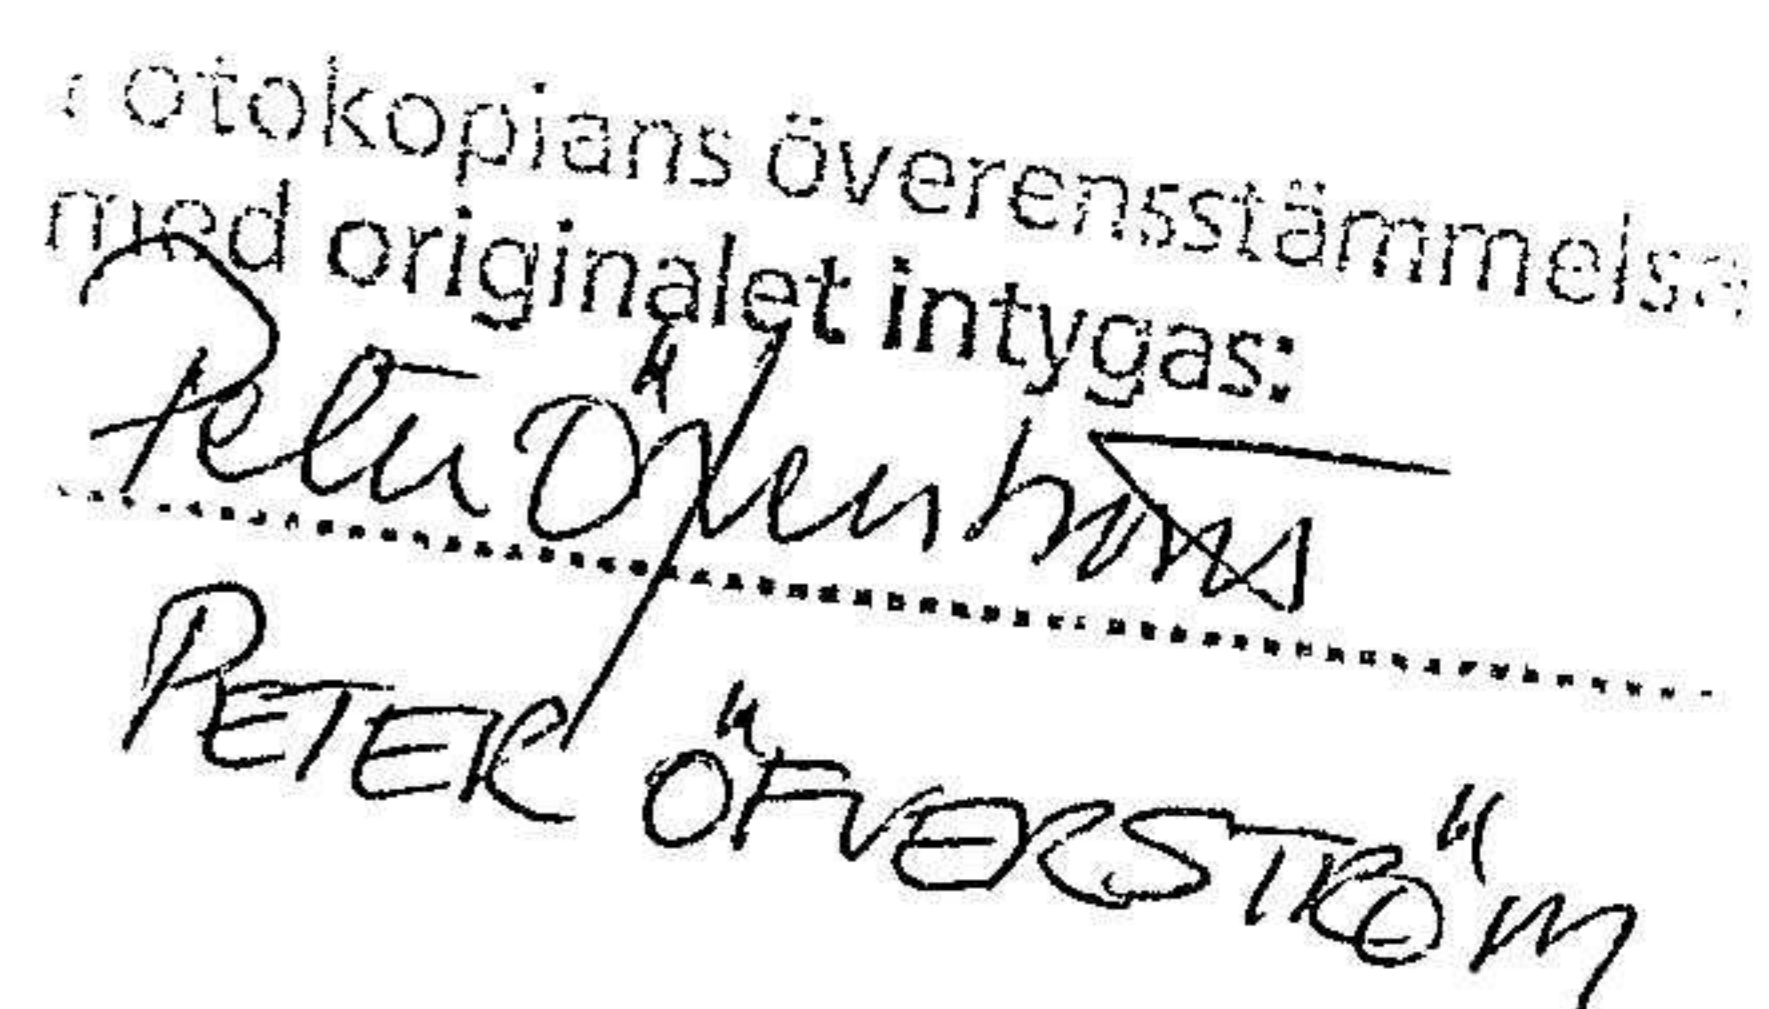 Fotokopians överensstämmelse
med originalet intygas:
Peter Öfverström
PETER ÖFVERSTRÖM